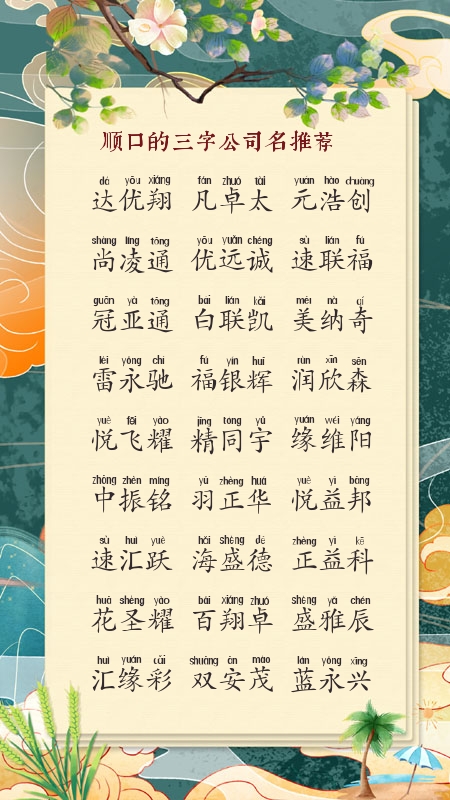 顺口的三字公司名推荐
dá yōu xiáng fán zhuó tài yuán hào chuàng
达优翔 凡卓太 元浩创
shàng líng tōng yōu yuǎn chéng sù lián fú
尚凌通 优远诚 速联福
guān yà tōng bái lián kǎi měi nà qí
冠亚通 白联凯 美纳奇
léi yǒng chí fú yín huī rùn xīn sēn
雷永驰 福银辉 润欣森
yuè fēi yào jīng tóng yǔ yuán wéi yáng
悦飞耀 精同宇 缘维阳
zhōng zhèn míng yǔ zhèng huá yuè yì bāng
中振铭 羽正华 悦益邦
sù huì yuè hǎi shèng dé zhèng yì kē
速汇跃 海盛德 正益科
huā shèng yào bǎi xiáng zhuó shèng yǎ chén
花圣耀 百翔卓 盛雅辰
huì yuán cǎi shuāng ān mào lán yǒng xīng
汇缘彩 双安茂 蓝永兴